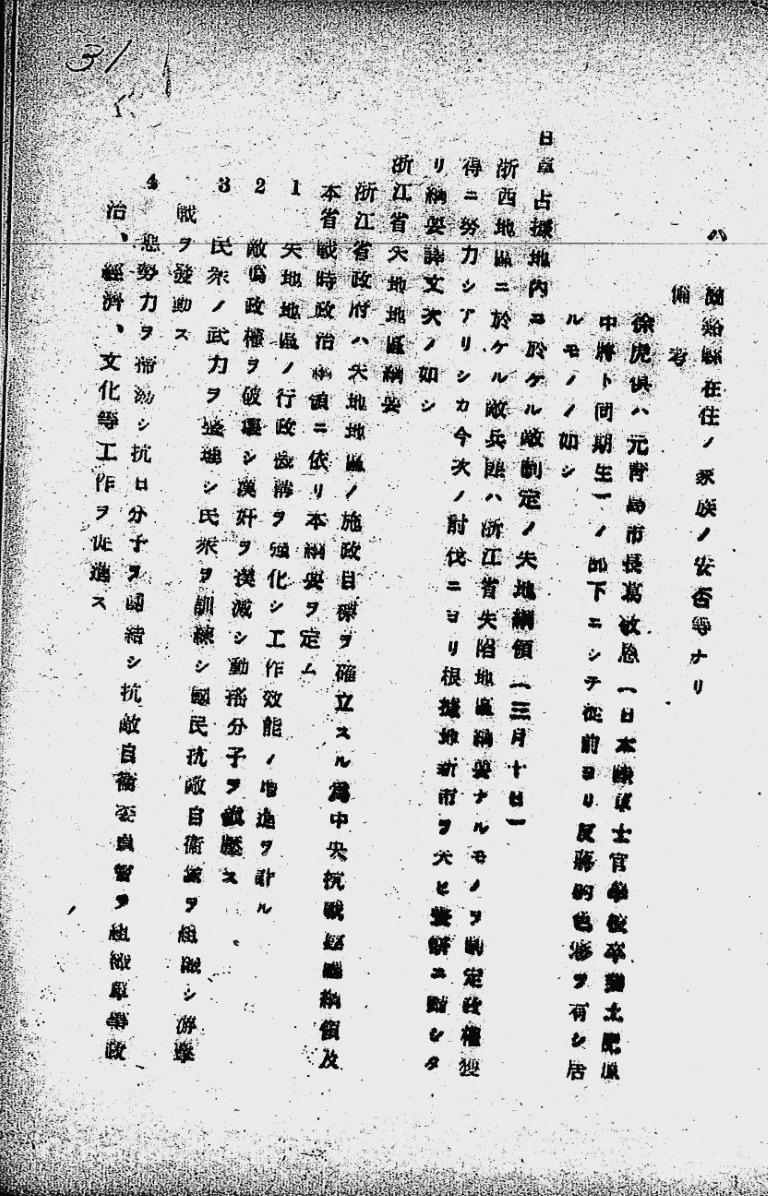 31
ハ
醴縣在住ノ家族ノ安否等ナリ
備考
徐虎侯ハ元青島市長葛敬恩(日本陸軍士官學校卒業土肥原
中將ト同期生)ノ部下ニシテ從前ヨリ反蔣的色彩ヲ有シ居
ルモノノ如シ
日軍占據地內ニ於ケル敵制定ノ失地綱領(三月十七日)
浙西地區ニ於ケル敵兵團ハ浙江省失陷地區綱要ナルモノヲ制定政權獲
得ニ努力シアリシカ今次ノ討伐ニヨリ根據地新市ヲ失ヒ發辭ニ點シタ
リ綱要譯文次ノ如シ
浙江省失地地區綱要
浙江省政府ハ失地地區ノ施政目標ヲ確立スル爲中央抗戰建國綱領及
本省戰時政治綱領ニ依リ本綱要ヲ定ム
1 失地地區ノ行政機構ヲ强化シ工作效能ノ增進ヲ計ル
2 敵僞政權ヲ破壞シ漢奸ヲ撲滅シ動搖分子ヲ鎭壓ス
3 民衆ノ武力ヲ發連シ民衆ヲ訓練シ國民抗敵自衞團ヲ組織シ游擊
戰ヲ發動ス
4 惡勢力ヲ掃蕩シ抗日分子ヲ團結シ抗敵自衞委員會ヲ組織軍事政
治、經濟、文化等工作ヲ促進ス